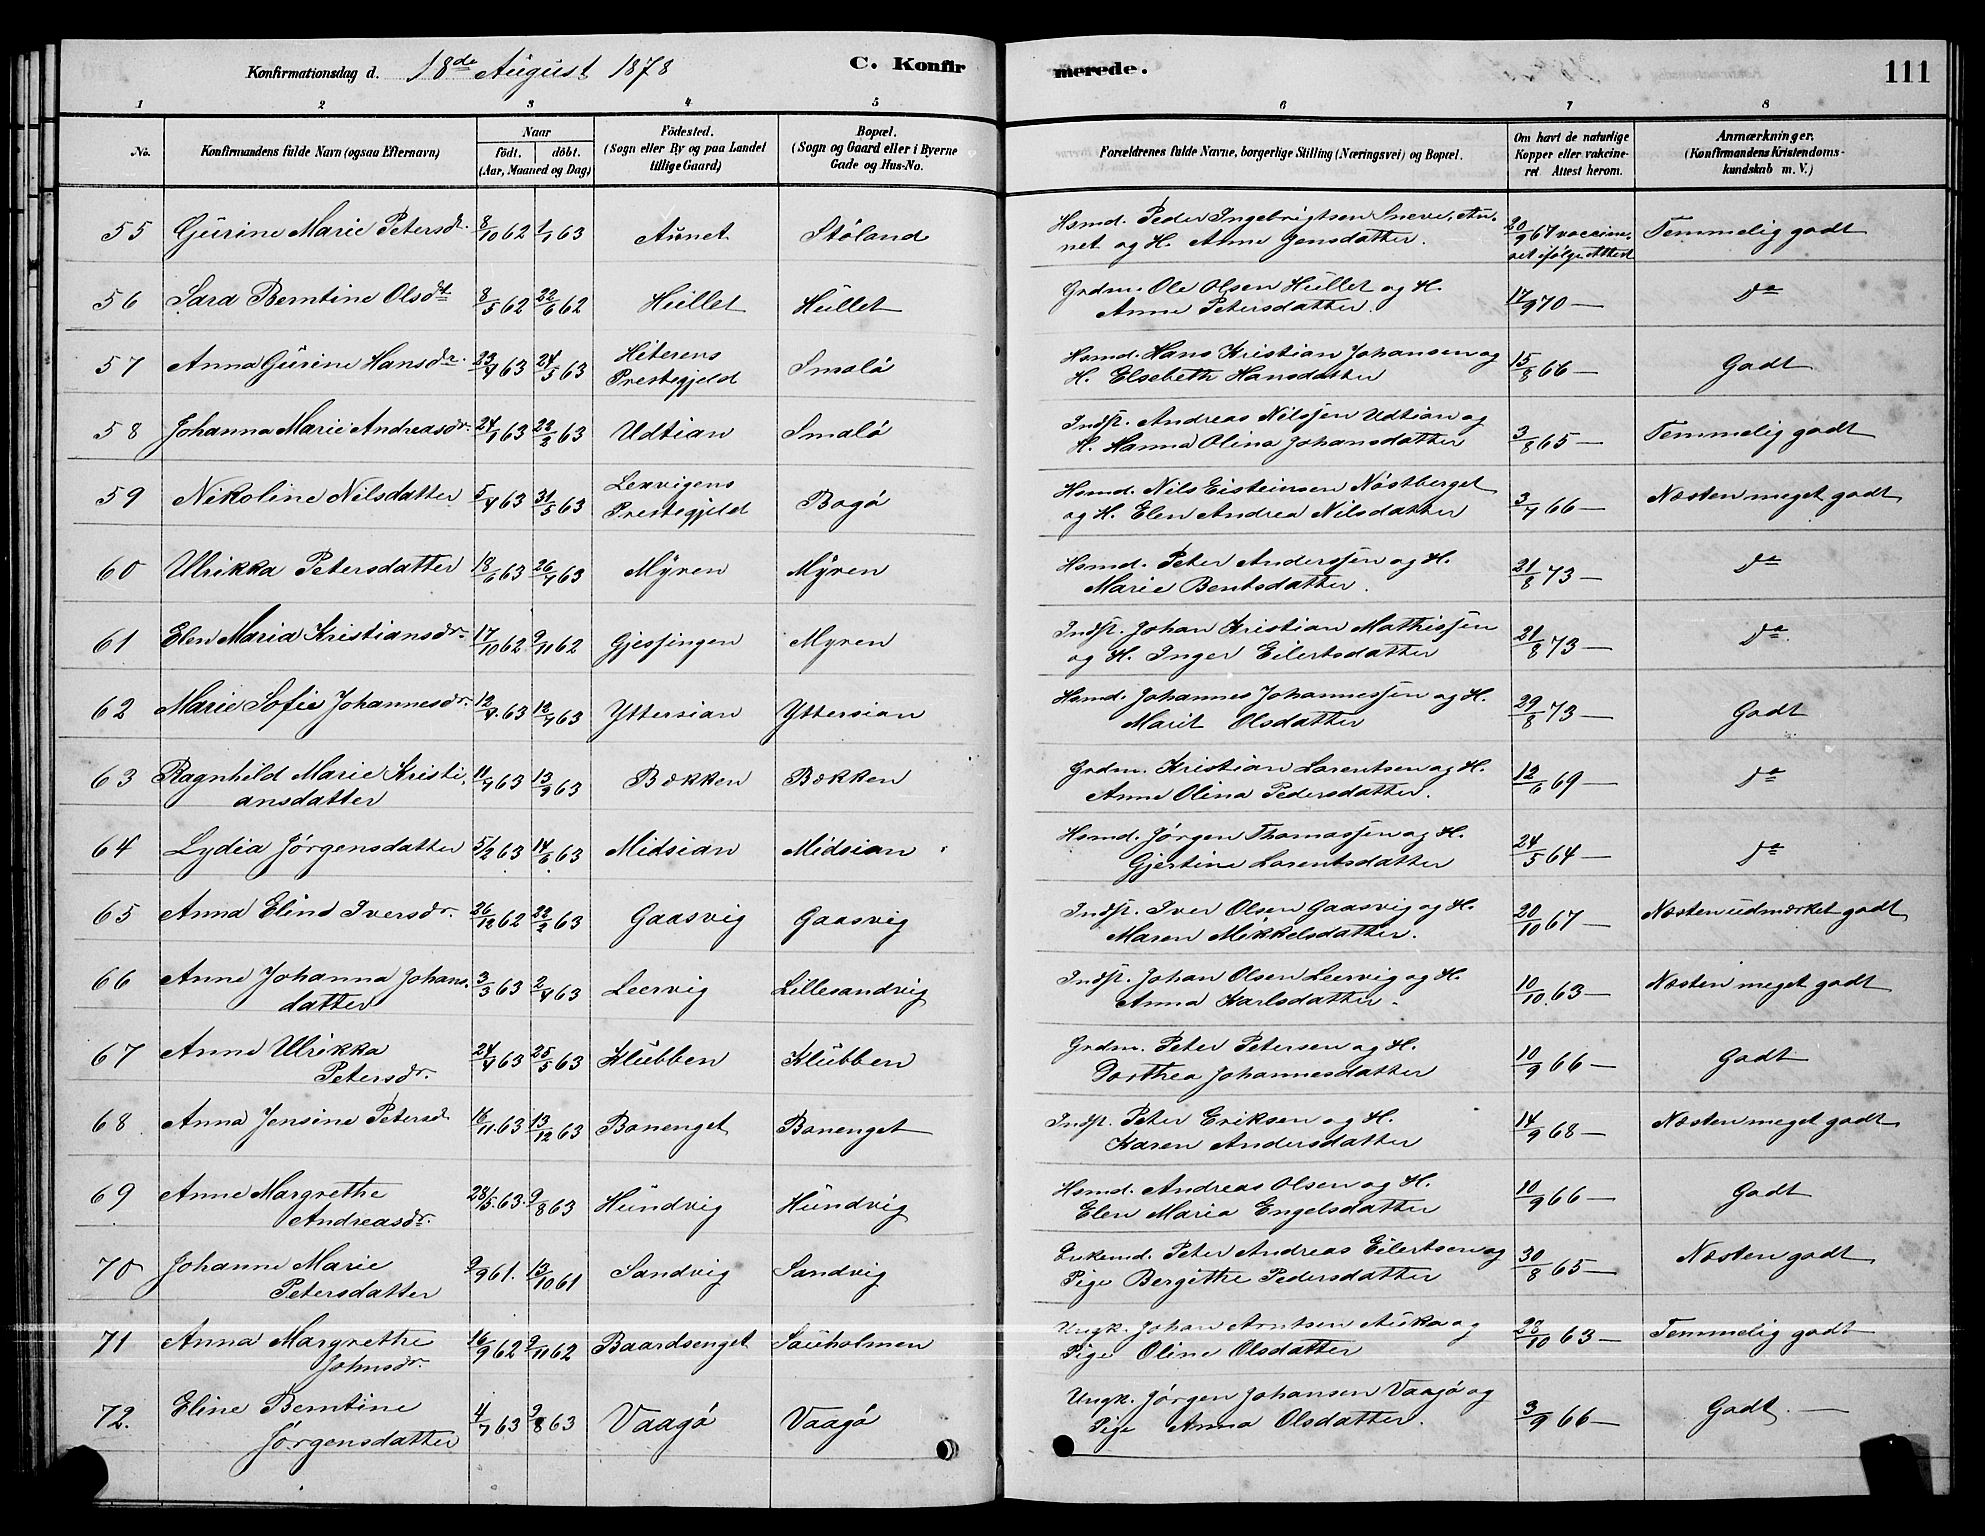 Konfirmationsdag d. 18de August 1878 C. Konfirmerede. 111
1 2 3 4 5 6 7 8
No. Konfirmandens fulde Navn (ogsaa Efternavn) Naar födt. döbt. (Aar, Maaned og Dag) Födested. (Sogn eller By og paa Landet tillige Gaard) Bopæl. (Sogn og Gaard eller i Byerne Gade og Hus-No. Forældrenes fulde Navne, borgerlige Stilling (Næringsvei) og Bopæl. Om havt de naturlige Kopper eller vakcineret. Attest herom. Anmærkninger. (Konfirmandens Kristendomskundskab m. V.)
55 Gurine Marie Petersdr. 8/10 62 1/1 63 Aunet Stöland Hsmd. Peder Ingebrigtsen Sneve, Aunet og H. Anne Jonsdatter. 20/9 67 vaccineret ifølge Attest Temmelig godt
56 Sara Berntine Olsdt 8/5 62 22/6 62 Hullet Hullet Grdm. Ole Olsen Hullet og H. Anne Petersdatter. 17/9 70 — Do
57 Anna Gurine Hansdr. 23/4 63 24/5 63 Hiterens Prestegjeld Smalö Hsmd. Hans Kristian Johansen og H. Elsebeth Hansdatter 15/8 66 — Godt
58 Johanna Marie Andreasdr. 24/1 63 22/2 63 Udtian Smalö Indst. Andreas Nilssen Udtian og H. Hanna Olina Johansdatter 3/8 65 — Temmelig godt
59 Nikoline Nilsdatter 5/4 63 31/5 63 Lexvigens Prestegjeld Bogö Hsmd. Nils Eisteinsen Nöstberget og H. Elen Andrea Nilsdatter 3/7 66 — Næsten meget godt
60 Ulrikka Petersdatter 18/6 63 26/7 63 Myren Myren Hsmd. Peter Anderssen og H. Marie Bentsdatter. 21/8 73 — Do
61 Elen Maria Kristiansdr. 17/10 62 9/11 62 Gjessingen Myren Indst. Johan Kristian Mathissen og H. Inger Eilertsdatter 21/8 73 — Do.
62 Marie Sofie Johannesdr. 12/4 63 12/7 63 Yttersian Yttersian Hsmd. Johannes Johannessen og H. Marit Olsdatter 29/8 73 — Godt
63 Ragnhild Marie Kristiansdatter 11/7 63 13/9 63 Bækken Bækken Grdm. Kristian Lorentsen og H. Anne Olina Pedersdatter. 12/6 69 — Do
64 Lydia Jörgensdatter 5/2 63 14/5 63 Midsian Midsian Hsmd. Jörgen Thomassen og H. Gjertine Lorentsdatter 24/5 64 — Do
65 Anna Elind Iversdr. 26/12 62 22/2 63 Gaasvig Gaasvig Indst. Iver Olsen Gaasvig og H. Maren Mikkelsdatter. 20/10 67 — Næsten udmærket godt
66 Anne Johanna Johansdatter 3/3 63 2/4 63 Leervig Lillesandvig Indst. Johan Olsen Leervig og H. Anna Karlsdatter. 10/10 63 — Næsten meget godt
67 Anne Ulrikka Petersdr. 24/4 63 25/5 63 Klubben Klubben Grdm. Peter Petersen og H. Dorthea Johannesdatter 10/9 66 — Godt
68 Anna Jensine Petersd 16/11 63 13/12 63 Bonenget Bonenget Indst. Peter Eriksen og H. Karen Andersdatter 14/9 68 — Næsten meget godt
69 Anne Margrethe Andreasdr. 28/5 63. 9/8 63 Hundvig Hundvig Hsmd. Andreas Olsen og H. Elen Maria Engelsdatter 10/9 66 — Godt
70 Johanne Marie Petersdatter 9/9 61. 13/10 61 Sandvig Sandvig Enkemd. Peter Andreas Eilertsen og Pige Bergithe Pedersdatter 30/8 65 — Næsten godt
71 Anna Margrethe Johnsdr. 16/9 62 9/11 62 Baardsenget Sauholmen Ungk. Johan Arntsen Auka og Pige Oline Olsdatter 28/10 63 — Temmelig godt
72. Eline Berntine Jörgensdatter 4/7 63 9/8 63 Vaagö Vaagö Ungk. Jörgen Johansen Vaagö og Pige Anna Olsdatter. 3/9 66 — Godt. —